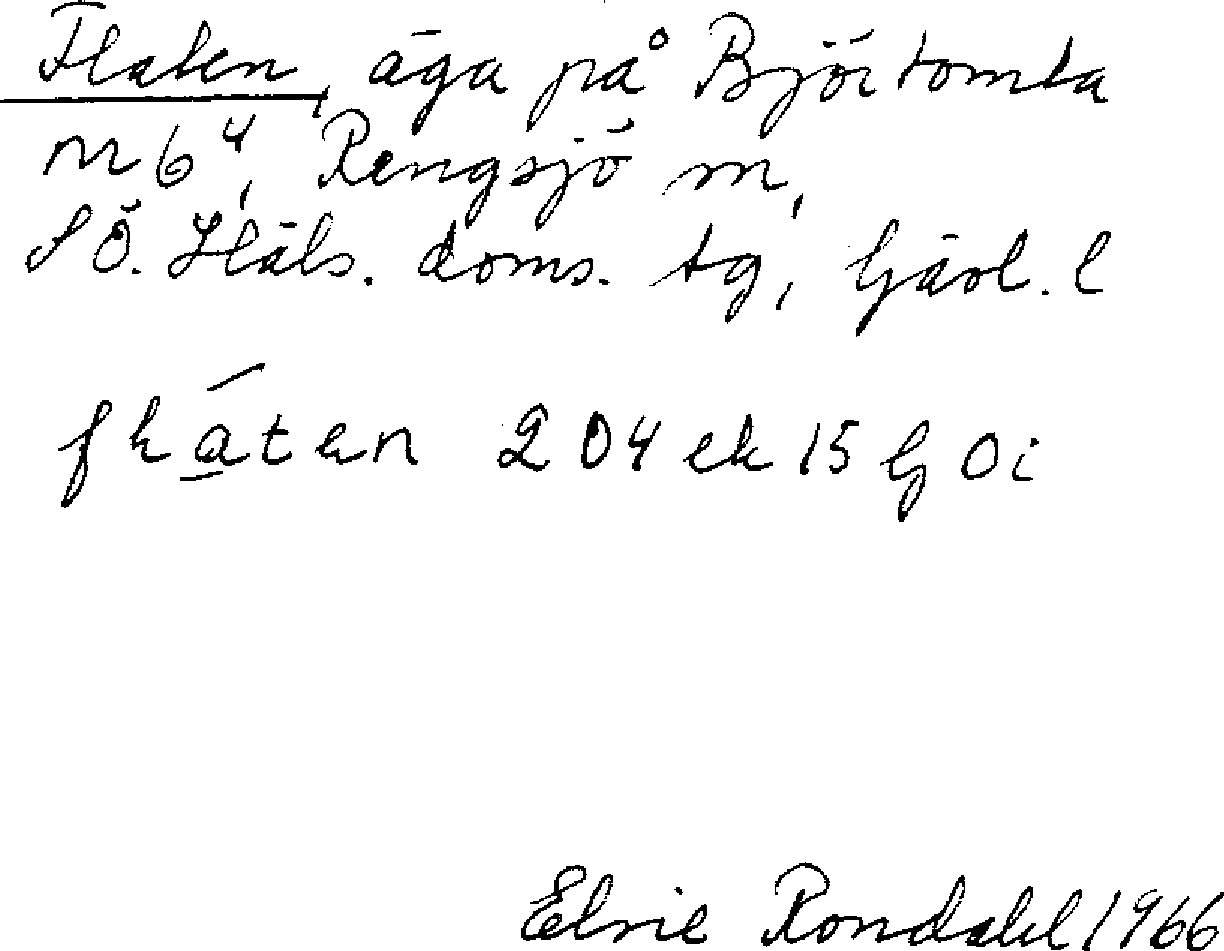 Flaten, äga på Björtomta
nr 6⁴, Rengsjö sn,
S Ö. Häls. doms. tg, Gävl. l
204 ek 15 G Oi
Elsie Rondahl 1966